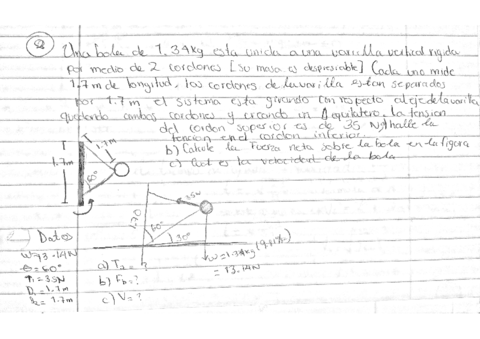 ②
Una bola de 1.34kg esta unida a una varilla vertical rigida
por medio de 2 cordones [su masa es despresiable] Cada uno mide
1.7m de longitud, los cordones de la varilla estan separados
por 1.7m el sistema esta girando con respecto al eje de la varilla
quedando ambos cordones y creando un Δ equilatero. la tension
del cordon superior es de 35 N halle la
tension en el cordon inferior
b) Calcule la Fuerza neta sobre la bola en la figura
c) Cual es la velocidad de la bola
1.7m
1.7m
60°
35N
1.70
60°
30°
w=1.34kg
= 13.14N
Datos
w=13.14N
θ=60°
T1=35N
1.7m
1.7m
a) T2=?
b) =?
c) V=?